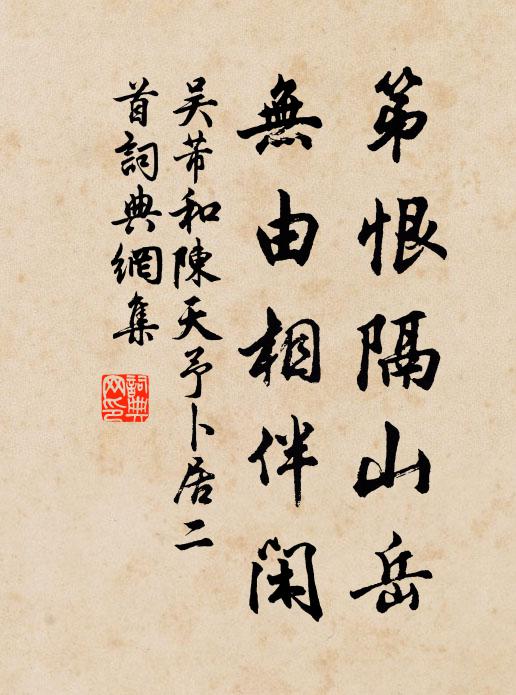 第恨隔山岳
無由相伴閑
吴芾和陳天予卜居二
首詞典網集
詞典
网印